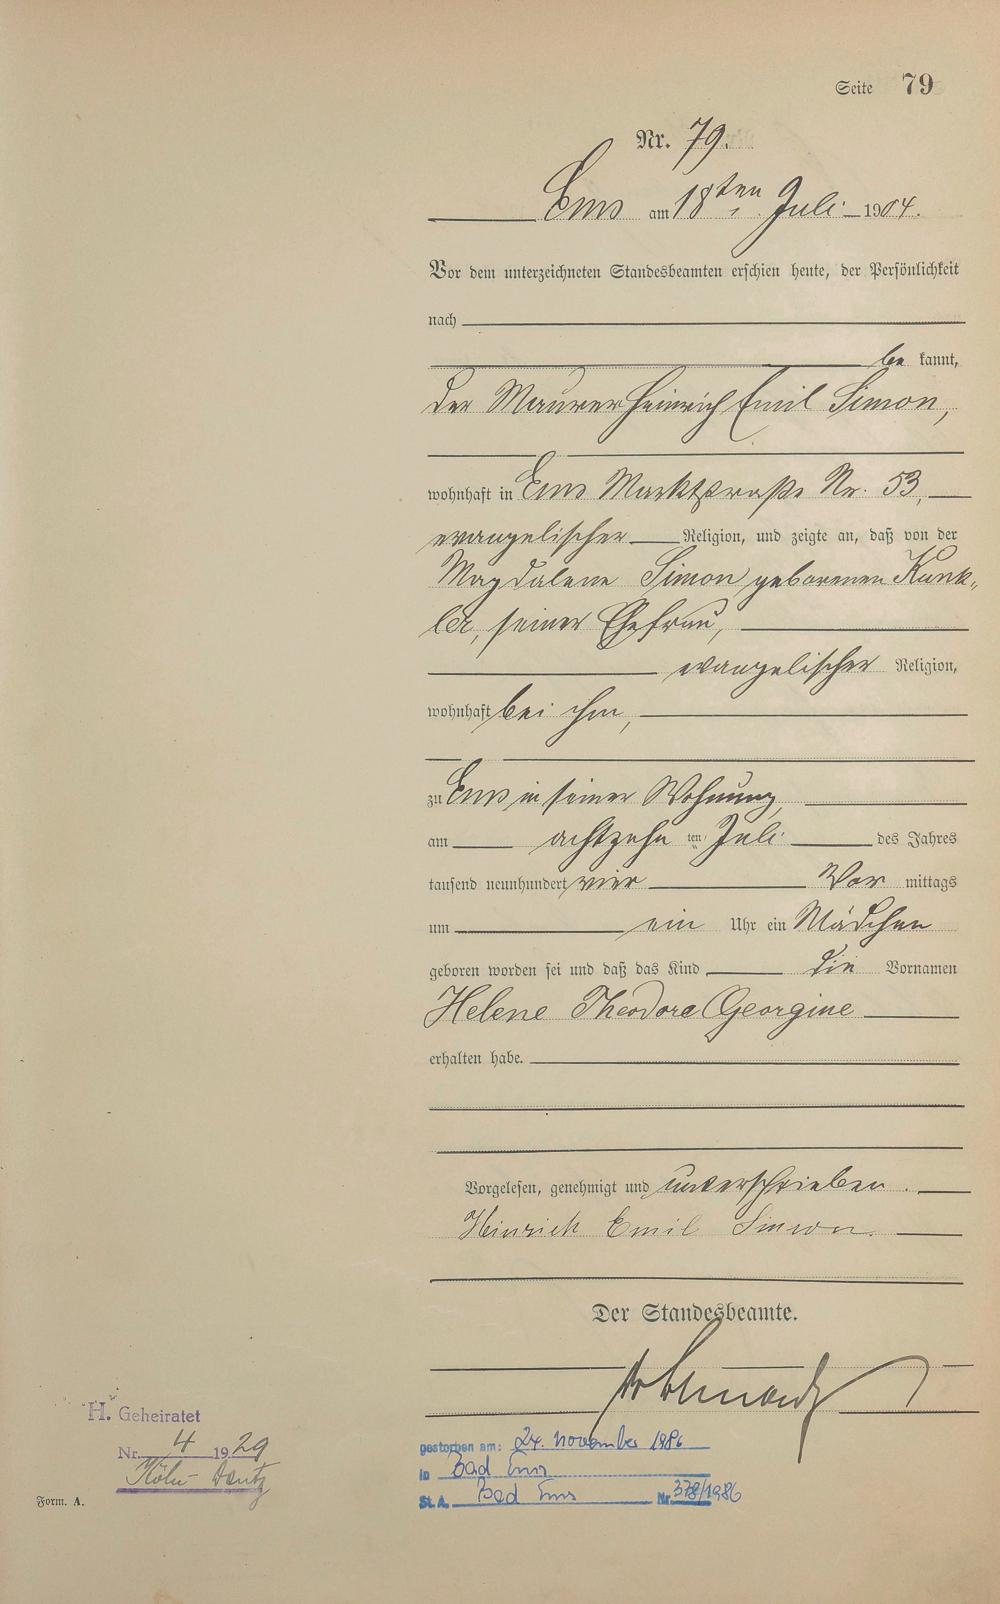 Seite 79
Nr. 79.
Ems am 18ten Juli 1904.
Vor dem unterzeichneten Standesbeamten erschien heute, der Persönlichkeit
nach
be kannt,
der Maurer Heinrich Emil Simon,
wohnhaft in Ems Marktstraße Nr. 53,
evangelischer Religion, und zeigte an, daß von der
Magdalene Simon geborenen Kunk-
ler, seiner Ehefrau,
evangelischer Religion,
wohnhaft bei ihm,
zu Ems in seiner Wohnung,
am achtzehn ten Juli des Jahres
tausend neunhundert vier Vor mittags
um ein Uhr ein Mädchen
geboren worden sei und daß das Kind die Vornamen
Helene Theodore Georgine
erhalten habe.
Vorgelesen, genehmigt und unterschrieben.
Heinrich Emil Simon.
Der Standesbeamte.
H. Geheiratet
Nr. 4 1929
Köln-Deutz
gestorben am: 24. November 1986
in Bad Ems
St. A. Bad Ems Nr. 378/1986
Form. A.